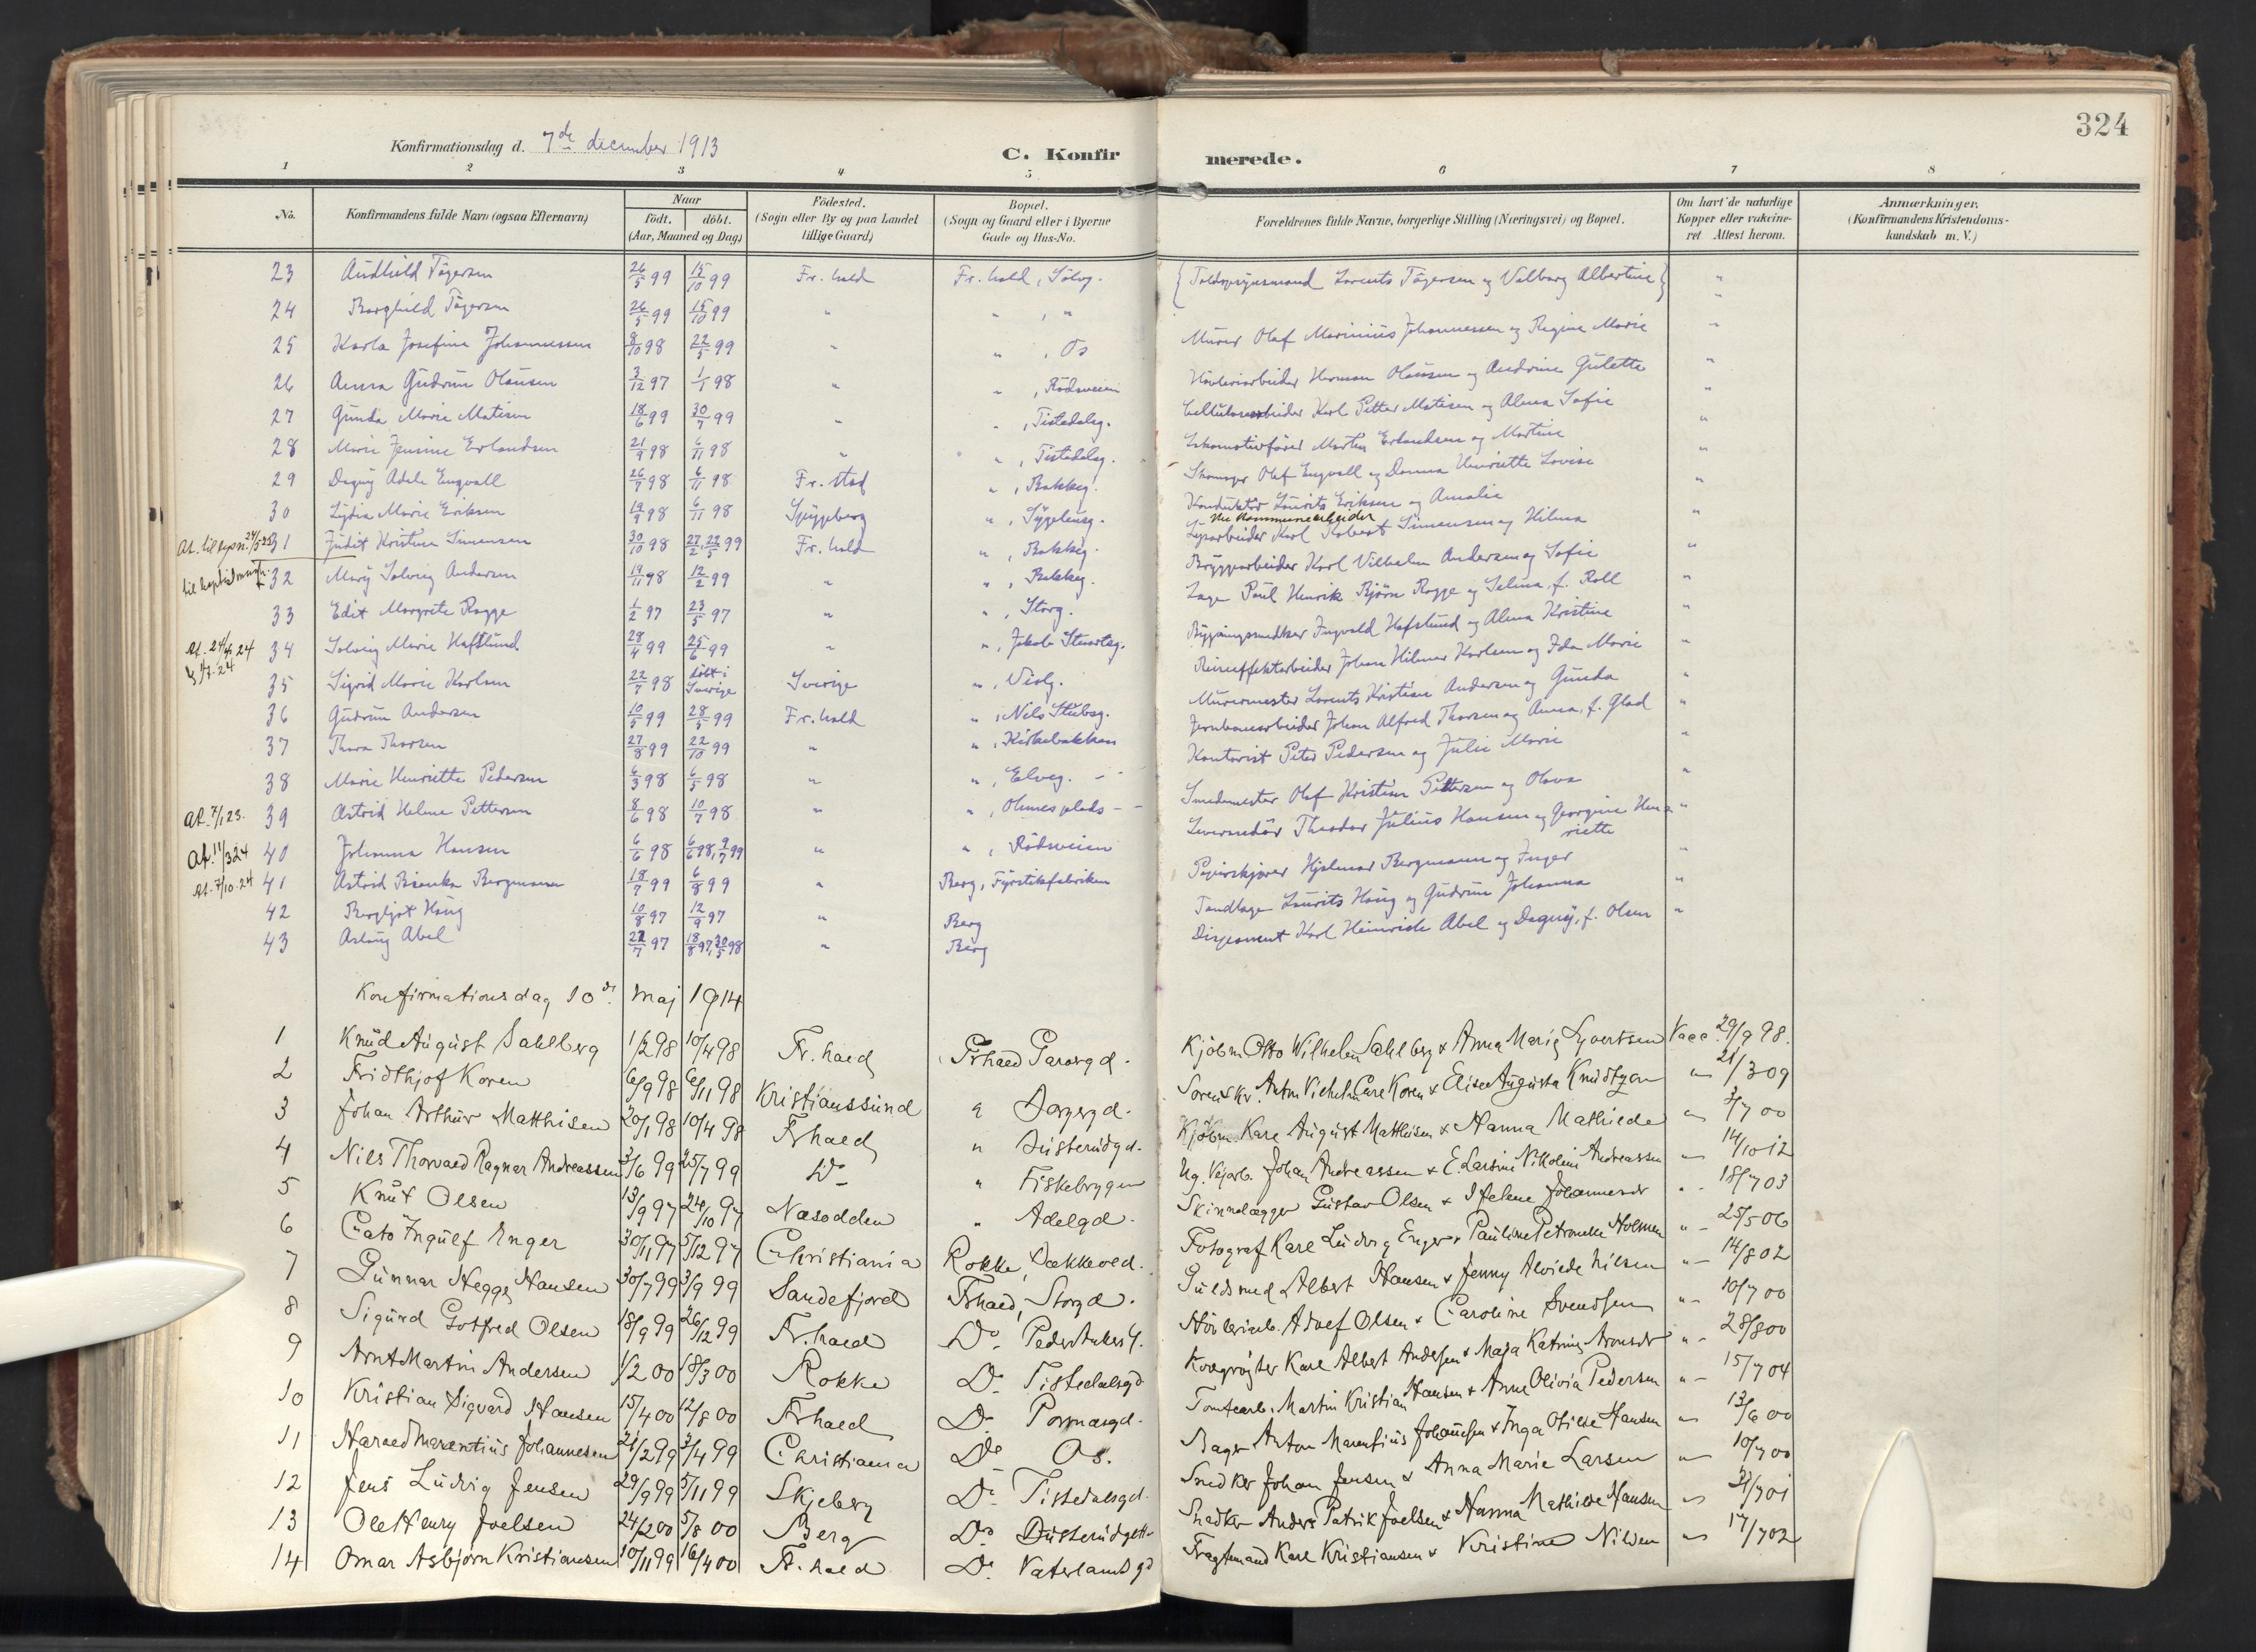 324
Konfirmationsdag d. 7de december 1913
C. Konfirmerede.
1 2 3 4 5 6 7 8
No. | Konfirmandens fulde Navn (ogsaa Efternavn) | Naar født. døbt. (Aar, Maaned og Dag.) | Fødested. (Sogn eller By og paa Landet tillige Gaard) | Bopæl. (Sogn og Gaard eller i Byerne Gade og Hus-No. | Forældrenes fulde Navne, borgerlige Stilling (Næringsvei) og Bopæl. | Om havt de naturlige Kopper eller vakcineret Attest herom. | Anmærkninger. (Konfirmandens Kristendomskundskab m. V.)
23 Audhild Tågersen 26/5 99 15/10 99 Fr.hald Fr.hald, { Lorents Tågersen og Valborg Albertine } "
24 Borghild Tågersen 26/5 99 15/10 99 " " , " "
25 Karla Josefine Johannessen 8/10 98 22/5 99 " " , Os Murer Olaf Marinius Johannessen og Regine Marie "
26 Anna Gudrun Olausen 3/12 97 1/1 98 " " , Rødsveien Høvleriarbeider Herman Olausen og Andrine Gulette "
27 Gunda Marie Matisen 18/6 99 30/7 99 " " , Tistedalsg. Cellulosearbeider Karl Petter Matisen og Alma Sofie "
28 Marie Jensine Erlandsen 21/9 98 6/11 98 " " , Tistedalsg. Lokomotivfører Martin Erlandsen og Martine "
29 Dagny Adele Engvall 26/7 98 6/11 98 Fr.stad " , Bakkeg. Skomager Olaf Engvall og Donna Henriette Lovise "
30 Lydia Marie Eriksen 19/9 98 6/11 98 Spydeberg " , Konduktør Laurits Eriksen og Amalie "
nu kommunearbeider
31 Judit Kristine Simensen 30/10 98 27/2, 22/5 99 Fr.hald " , Bakkeg. Karl Robert Simensen og Hilma "
32 Mary Solveig Andersen 19/11 98 12/2 99 " " , Bakkeg. Bryggearbeider Karl Vilhelm Andersen og Sofie "
33 Edit Margrete Rogge 1/2 97 23/5 97 " " , Storg. Læge Paul Henrik Bjørn Rogge og Selma, f. Roll "
At. 24/4 24
34 Solveig Marie Hafslund 28/4 99 25/6 99 " " , Jakob Stuartsg. Bygningssnedker Ingvald Hafslund og Alma Kristine "
35 Sigrid Marie Karlsen 22/7 98 døbt i Sverige Sverige " , Violg. Johan Hilmer Karlsen og Ida Marie "
36 Gudrun Andersen 10/5 99 28/5 99 Fr.hald " , Nils Stubsg. Murermester Lorents Kristian Andersen og Gunda "
37 Thora Thorsen 27/8 99 22/10 99 " " , Kirkebakken Jernbanearbeider Johan Alfred Thorsen og Anna, f. Glad "
38 Marie Henriette Pedersen 6/3 98 6/5 98 " " , Elveg. - - Kontorist Peter Pedersen og Julie Marie "
At. 7/1 23.
39 Astrid Helene Pettersen 8/6 98 10/7 98 " " , Ohmesplads - - Smedmester Olaf Kristian Pettersen og Olava "
At. 11/3 24
40 Johanna Hansen 6/6 98 6/6 98, 9/7 99 " " , Rødsveien Theodor Julius Hansen og Georgine Henriette "
At. 7/10.24
41 Astrid Bianka Bergmann 18/7 99 6/8 99 " Berg, Fyrstikfabriken Papirskjærer Hjalmar Bergmann og Inger "
42 Bergljot Haug 10/8 97 12/9 97 " Berg Tandlæge Laurits Haug og Gudrun Johanna "
43 Aslaug Abel 22/7 97 18/8 97, 30/5 98 " Berg Disponent Karl Heinrich Abel og Dagny, f. Olsen "
Konfirmationsdag 10de maj 1914
1 Knud August Sahlberg 1/2 98 10/4 98 Fr.hald Frhald Kjøbm Otto Wilhelm Sahlberg & Anna Marie Syvertsen Vacc. 29/9 98.
2 Fridthjof Koren 6/9 98 6/11 98 Kristianssund " Sorenskr. Anton Vilhelm Carl Koren & Elise Augusta Knudtzon " 21/3 09
3 Johan Arthur Matthisen 20/1 98 10/4 98 Frhald " Busterudgd. Kjøbm. Karl August Matthisen & Hanna Mathilde " 4/7 00
4 Nils Thorvald Ragnar Andreassen 3/6 99 25/7 99 Do " Fiskebryggen Johan Andreassen & E. Larsine Nikoline Andreassen " 14/10 12
5 Knut Olsen 13/9 97 24/10 97 Næsodden " Adelgd. Skinnelægger Gustav Olsen & Helene Johannesdr " 18/7 03
6 Cato Ingulf Enger 30/11 97 5/12 97 Christiania Rokke, Bakkevold. Fotograf Karl Ludvig Enger & Pauline Petronelle Holmen " 25/5 06
7 Gunnar Hegge Hansen 30/7 99 3/9 99 Sandefjord Frhald, Storgd. Guldsmed Albert Hansen & Jenny Alvilde Nilsen " 14/8 02
8 Sigurd Gotfred Olsen 18/9 99 26/12 99 Fr.hald Do. Peder Ankers g. Høvleriarb. Adolf Olsen & Caroline Svendsen " 10/7 00
9 Arnt Martin Andersen 1/2 00 18/3 00 Rokke Do. Tistedalsgd Karl Albert Andersen & Maja Katrine Arnesdr " 28/8 00
10 Kristian Sigvard Hansen 15/4 00 12/8 00 Frhald Do. Tomtearb. Martin Kristian Hansen & Anne Olivia Pedersen " 15/7 04
11 Harald Marentius Johannesen 21/2 99 3/4 99 Christiania Do Os. Bager Anton Marentius Johannesen & Inga Otilie Hansen " 13/6 00
12 Jens Ludvig Jensen 29/9 99 5/11 99 Skjeberg Do. Tistedalsgd. Snedker Johan Jensen & Anna Marie Larsen " 10/7 00
13 Ole Henry Joelsen 24/2 00 5/8 00 Berg Do Busterudgt Snedker Anders Patrik Joelsen & Hanna Mathilde Hansen " 31/7 01
14 Omar Asbjørn Kristiansen 10/11 99 16/4 00 Fr.hald Do. Vaterlandsgd Fragtemand Karl Kristiansen & Kristine Nilsen " 17/7 02